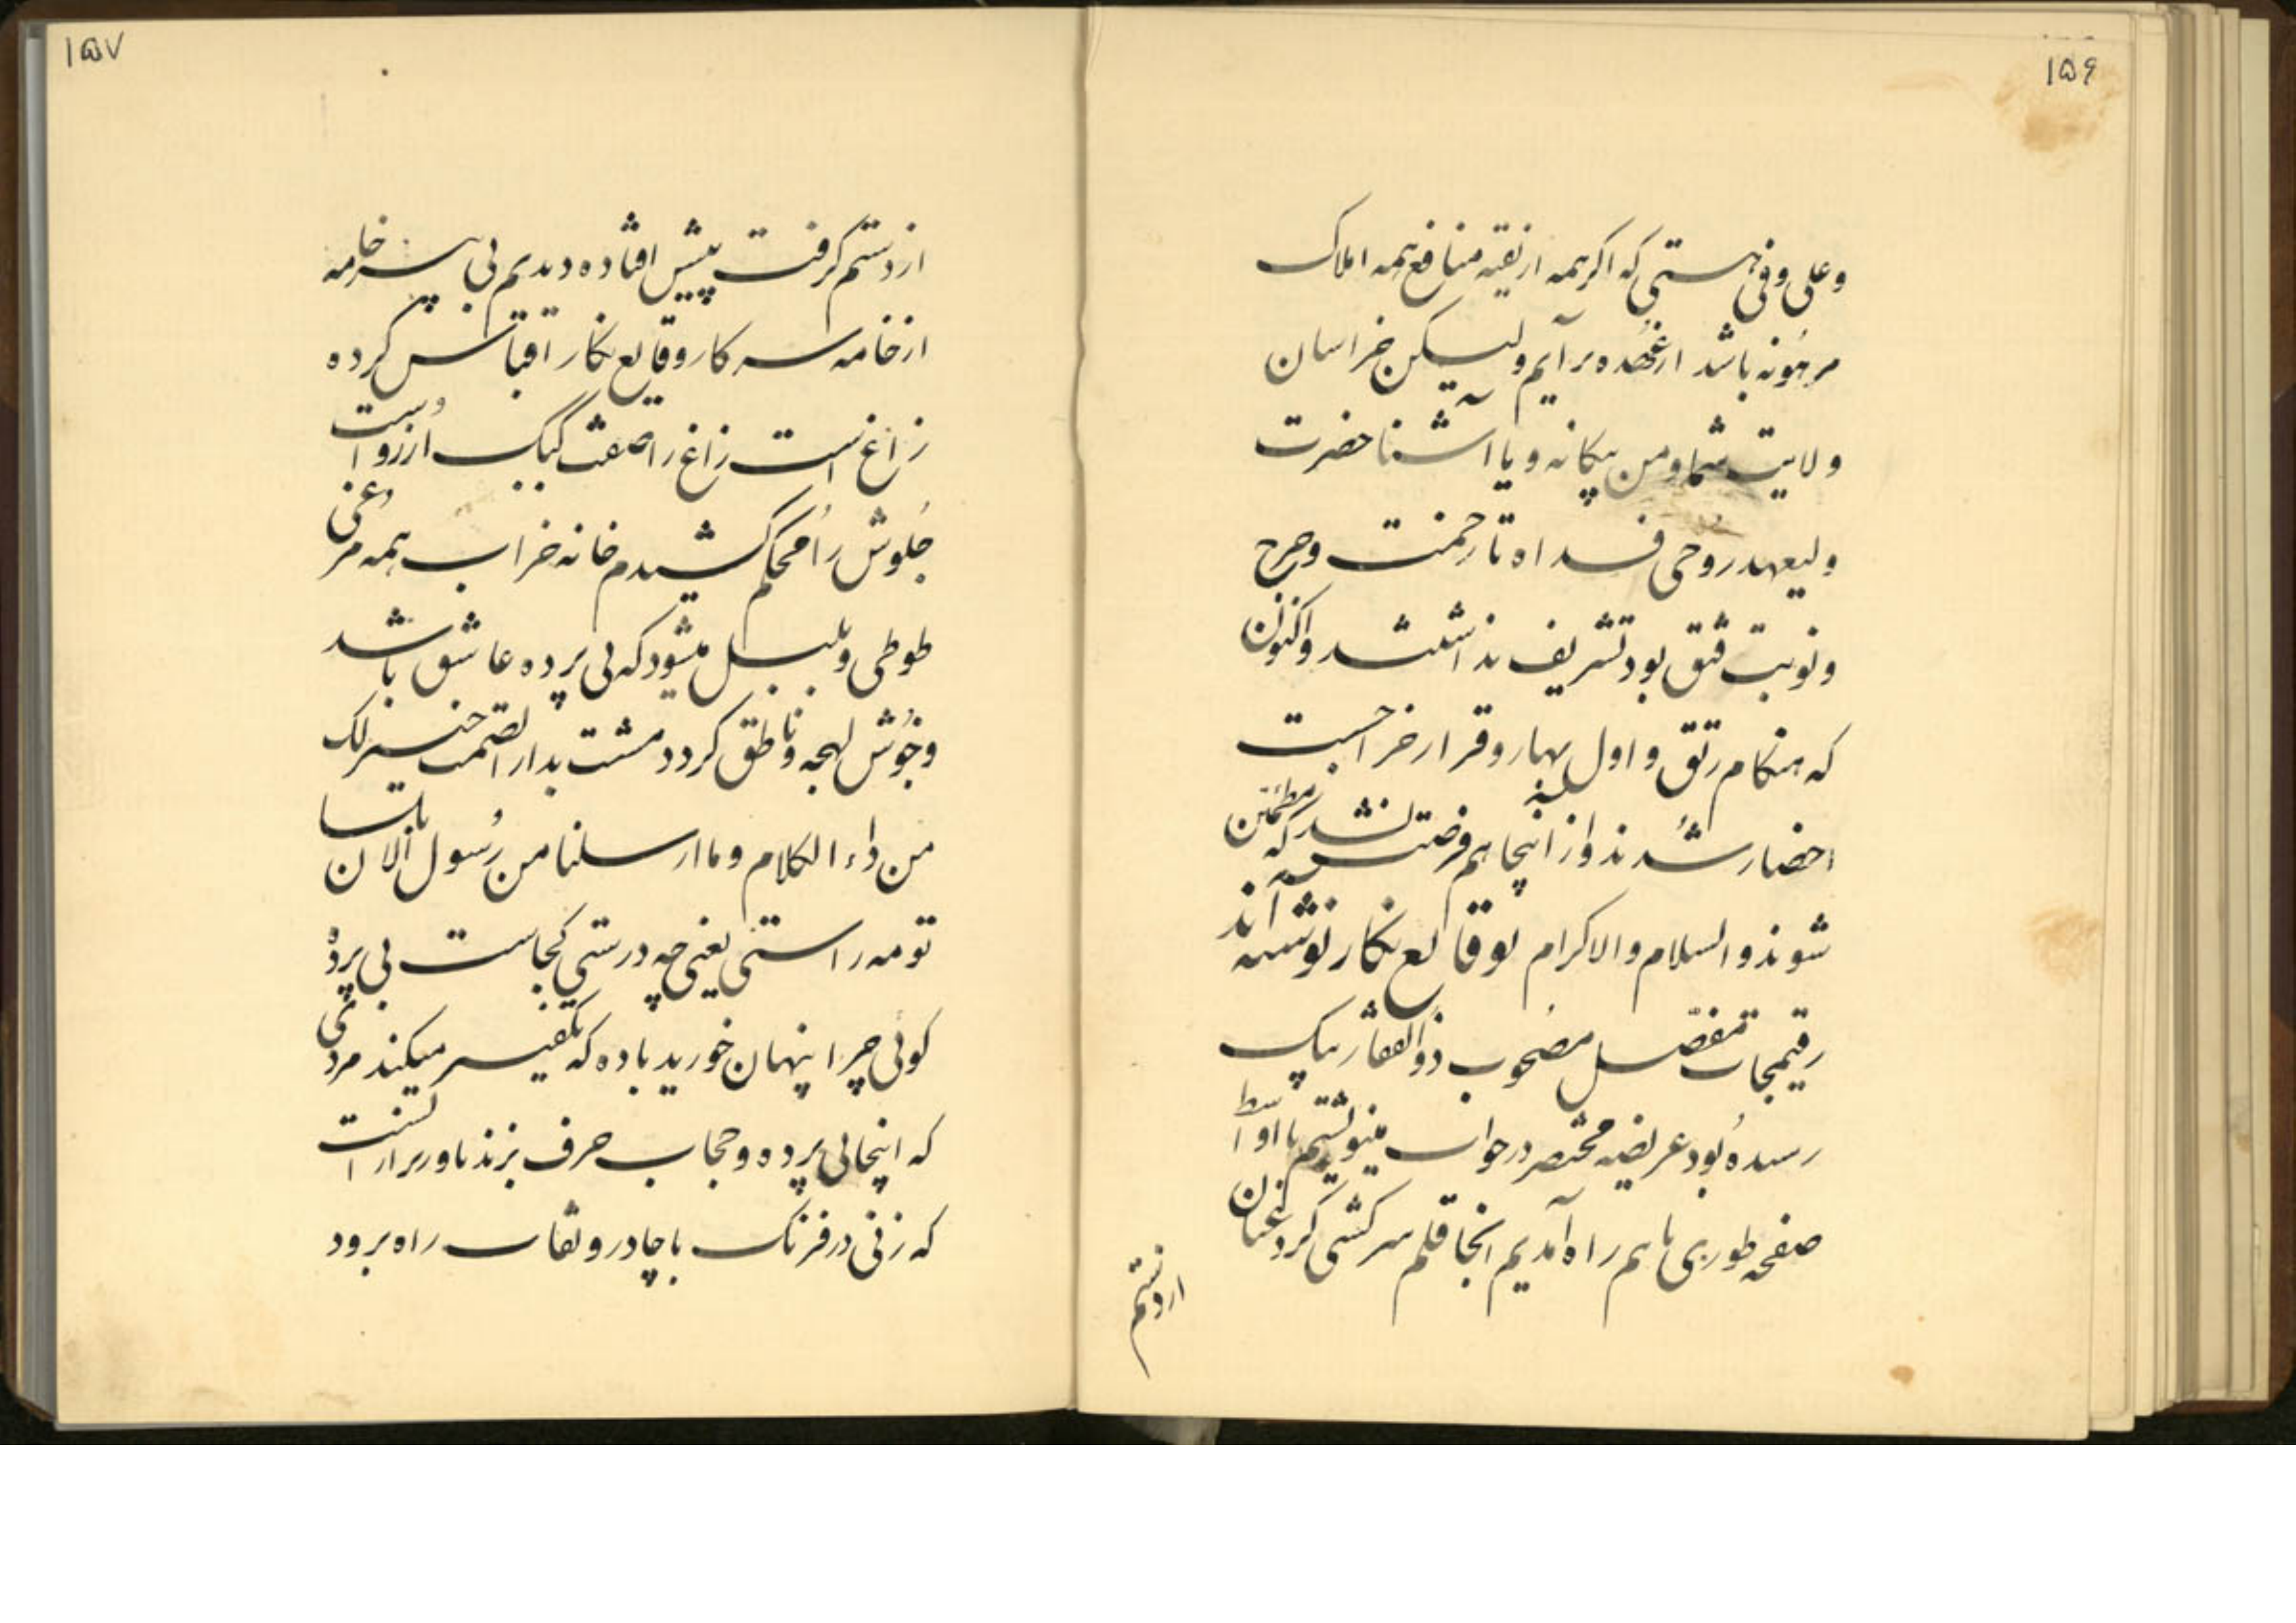 ۱۵۶
و علی وفی هستی که اگر همه از بقیه منافع همه املاک
مرهونه باشد از عهده برآیم ولیکن خراسان
ولایت شما و من بیکانه و یا آشنا حضرت
ولیعهد روحی فداه تا زحمت و حرج
و نوبت فتق بود تشریف نداشتند و اکنون
که هنکام رتق و اول بهار و قرار خراجست
احضار شدند و از اینجا هم فرصت نشد که مطمئن
شوند والسلام والاکرام بوقایع نکار نوشته اند
رقیمجات مفصل مصحوب ذوالفقار بیک
رسیده بود عریضه مختصر در جواب مینوشتم با اواسط
صفحه طوری با هم راه آمدیم انجا قلم سرکشی کرد عنان
از دستم
۱۵۷
از دستم کرفت پیش افتاده دیدم بی پیر خامه
از خامه سرکار وقایع نکار اقتباس کرده
زاغ است زاغ را صفت کبک آرزواست
جلوش را محکم کشیدم خانه خراب همه مرغی
طوطی و بلبل میشود که بی پرده عاشق باشد
و خوش لهجه و ناطق کردد مشت بدار الصمت خیر لک
من داء الکلام و ما ارسلنا من رسول الا بلسان
تو مه راستی یعنی چه درستی کجاست بی پرده
کوئی چرا پنهان خورید باده که تکفیر میکند مردی
که اینجا بی پرده و حجاب حرف بزند باور برار است
که زنی در فرنک با چادر و نقاب راه برود